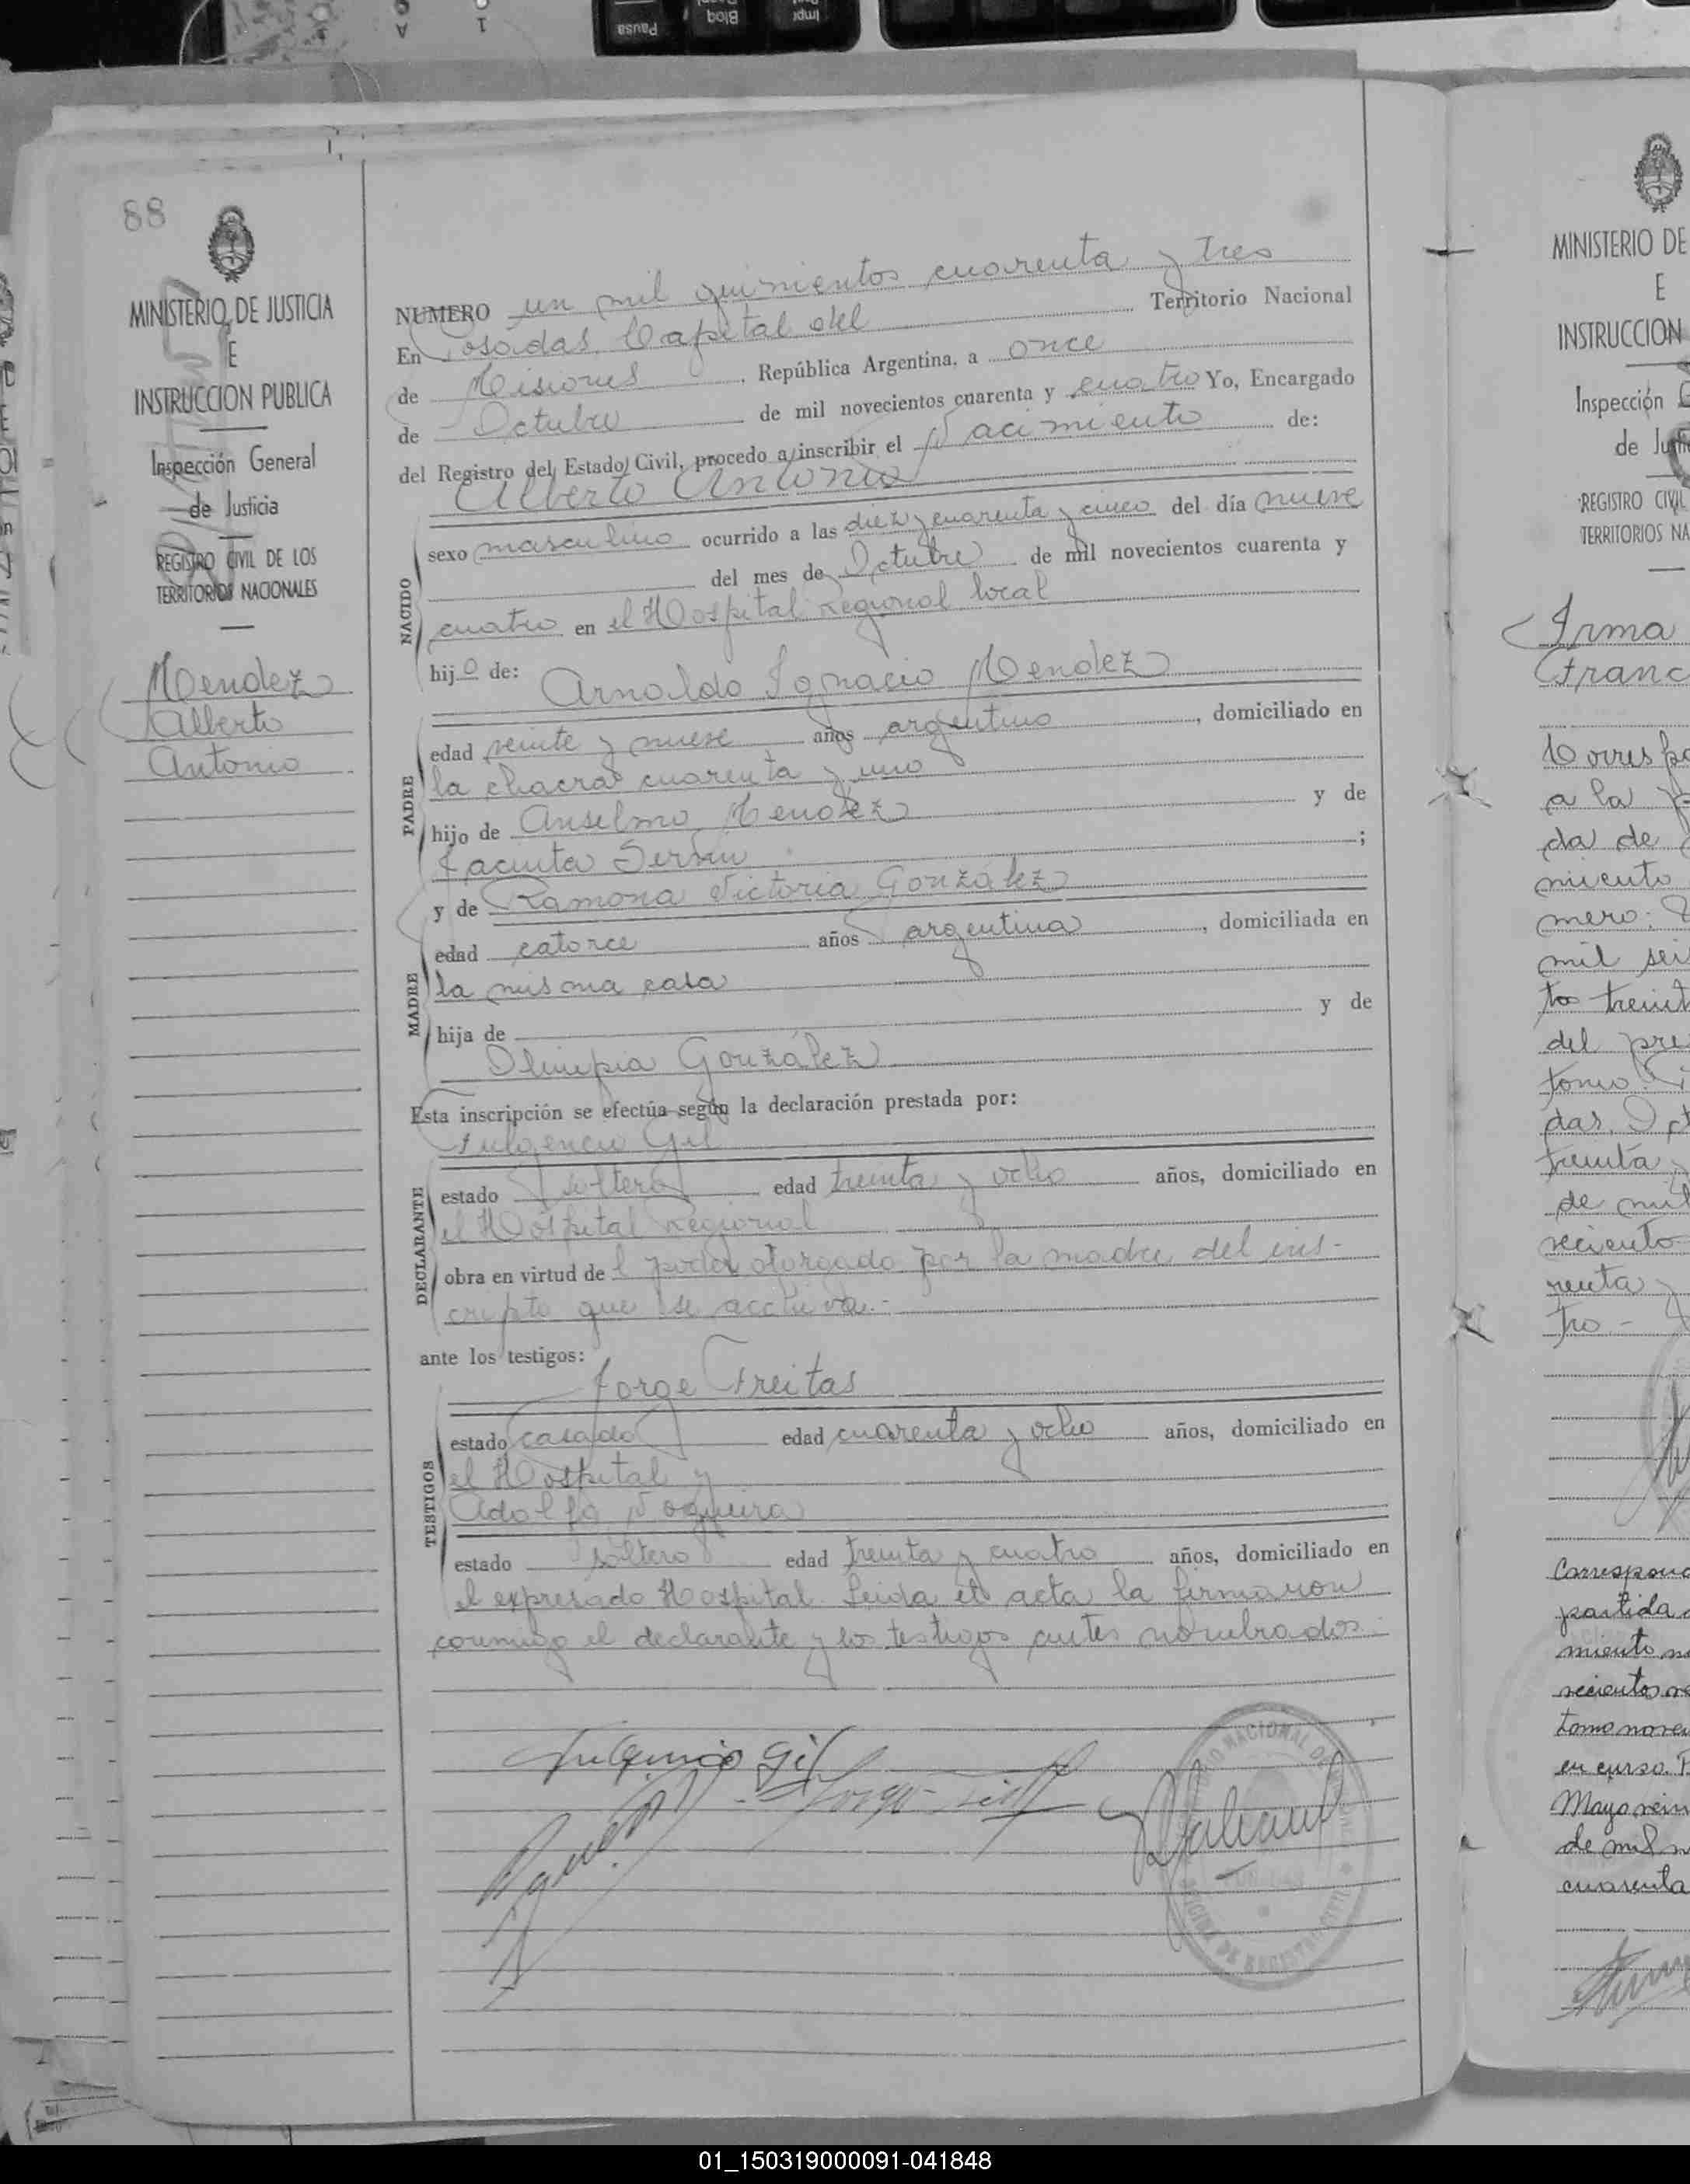 Pausa
Bloq
Impr
88
MINISTERIO DE JUSTICIA
E
INSTRUCCION PUBLICA
Inspección General
de Justicia
REGISTRO CIVIL DE LOS
TERRITORIOS NACIONALES
Mendez
Alberto
Antonio
NUMERO un mil quinientos cuarenta y tres
En Posadas Capital del Territorio Nacional
de Misiones, República Argentina, a once
de Octubre de mil novecientos cuarenta y cuatro Yo, Encargado
del Registro del Estado Civil, procedo a inscribir el Nacimiento de:
Alberto Antonio
NACIDO
sexo masculino ocurrido a las diez y cuarenta y cinco del día nueve
del mes de Octubre de mil novecientos cuarenta y
cuatro en el Hospital Regional local
hijo de: Arnoldo Ignacio Mendez
PADRE
edad veinte y nueve años argentino, domiciliado en
la chacra cuarenta y uno
hijo de Anselmo Mendez y de
Jacinta ;
y de Ramona Victoria González
MADRE
edad catorce años argentina, domiciliada en
la misma casa
hija de y de
Olimpia González
Esta inscripción se efectúa según la declaración prestada por:
Fulgencio Gil
DECLARANTE
estado soltero edad treinta y ocho años, domiciliado en
el Hospital Regional
obra en virtud del poder otorgado por la madre del ins-
cripto que se archiva.-
ante los testigos:
Jorge Freitas
TESTIGOS
estado casado edad cuarenta y ocho años, domiciliado en
el Hospital y
Adolfo Noguera
estado soltero edad treinta y cuatro años, domiciliado en
el expresado Hospital. Leida el acta la firmaron
conmigo el declarante y los testigos antes nombrados.
Fulgencio Gil
MINISTERIO DE
E
INSTRUCCION
Inspección G
de Justi
REGISTRO CIVIL
TERRITORIOS NA
Irma
Franc
Corresp
a la p
da de
miento
mero:
mil seis
tos treint
del pre
tomo.
das, Oct
treinta
de mil
veciento
renta y
tro -
Correspond
partida
miento
vecientos
tomo
en curso. P
Mayo vein
de mil n
cuarenta
01_150319000091-041848